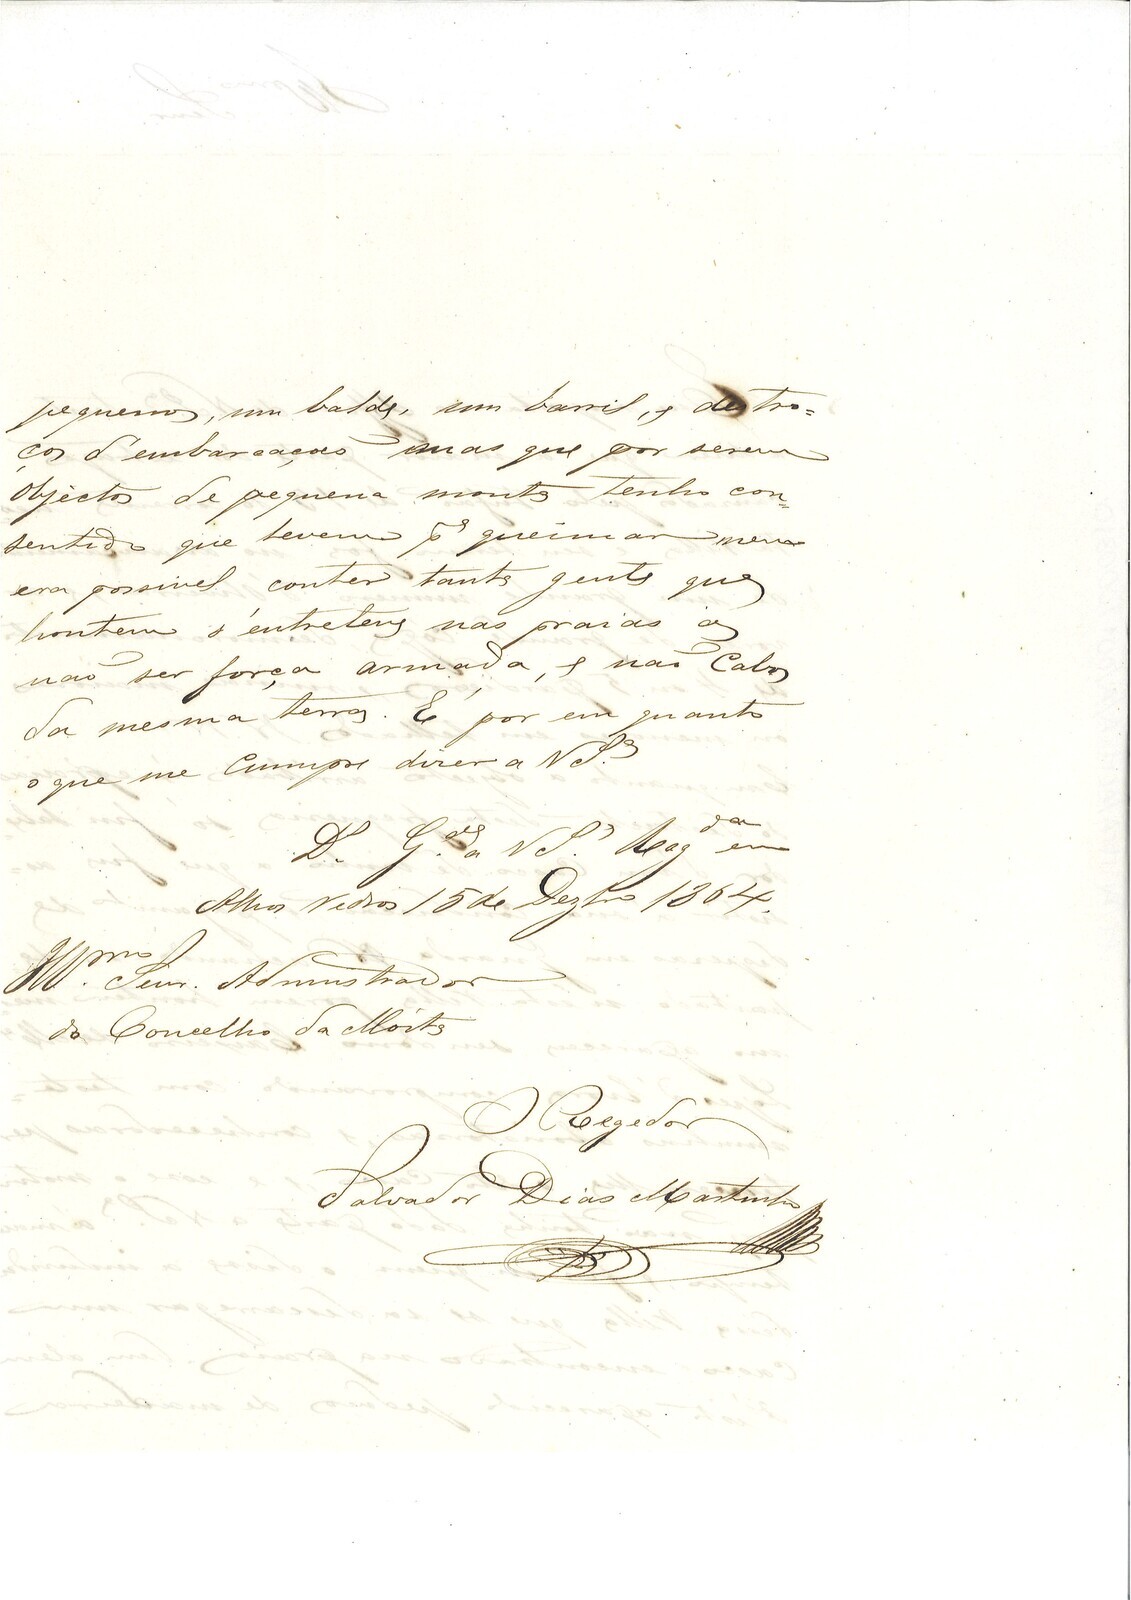 pequenos, um balde, um barril, e destro=
ços d'embarcaçao mas que por serem
objectos de pequena monta tenho con=
sentido que levem pª queimar nem
era possivel conter tanta gente que
hontem s'entreteve nas praias a
não ser força armada, e não Cabos
da mesma terra. É por em quanto
o que me cumpre dizer a V Sª
Ds. G.de a V S.ª Reg.da em
Alhos Vedros 15 de Dezbro 1864.
Illmo. Senr. Administrador
do Concelho da Moita
O Regedor
Salvador Dias Martinho